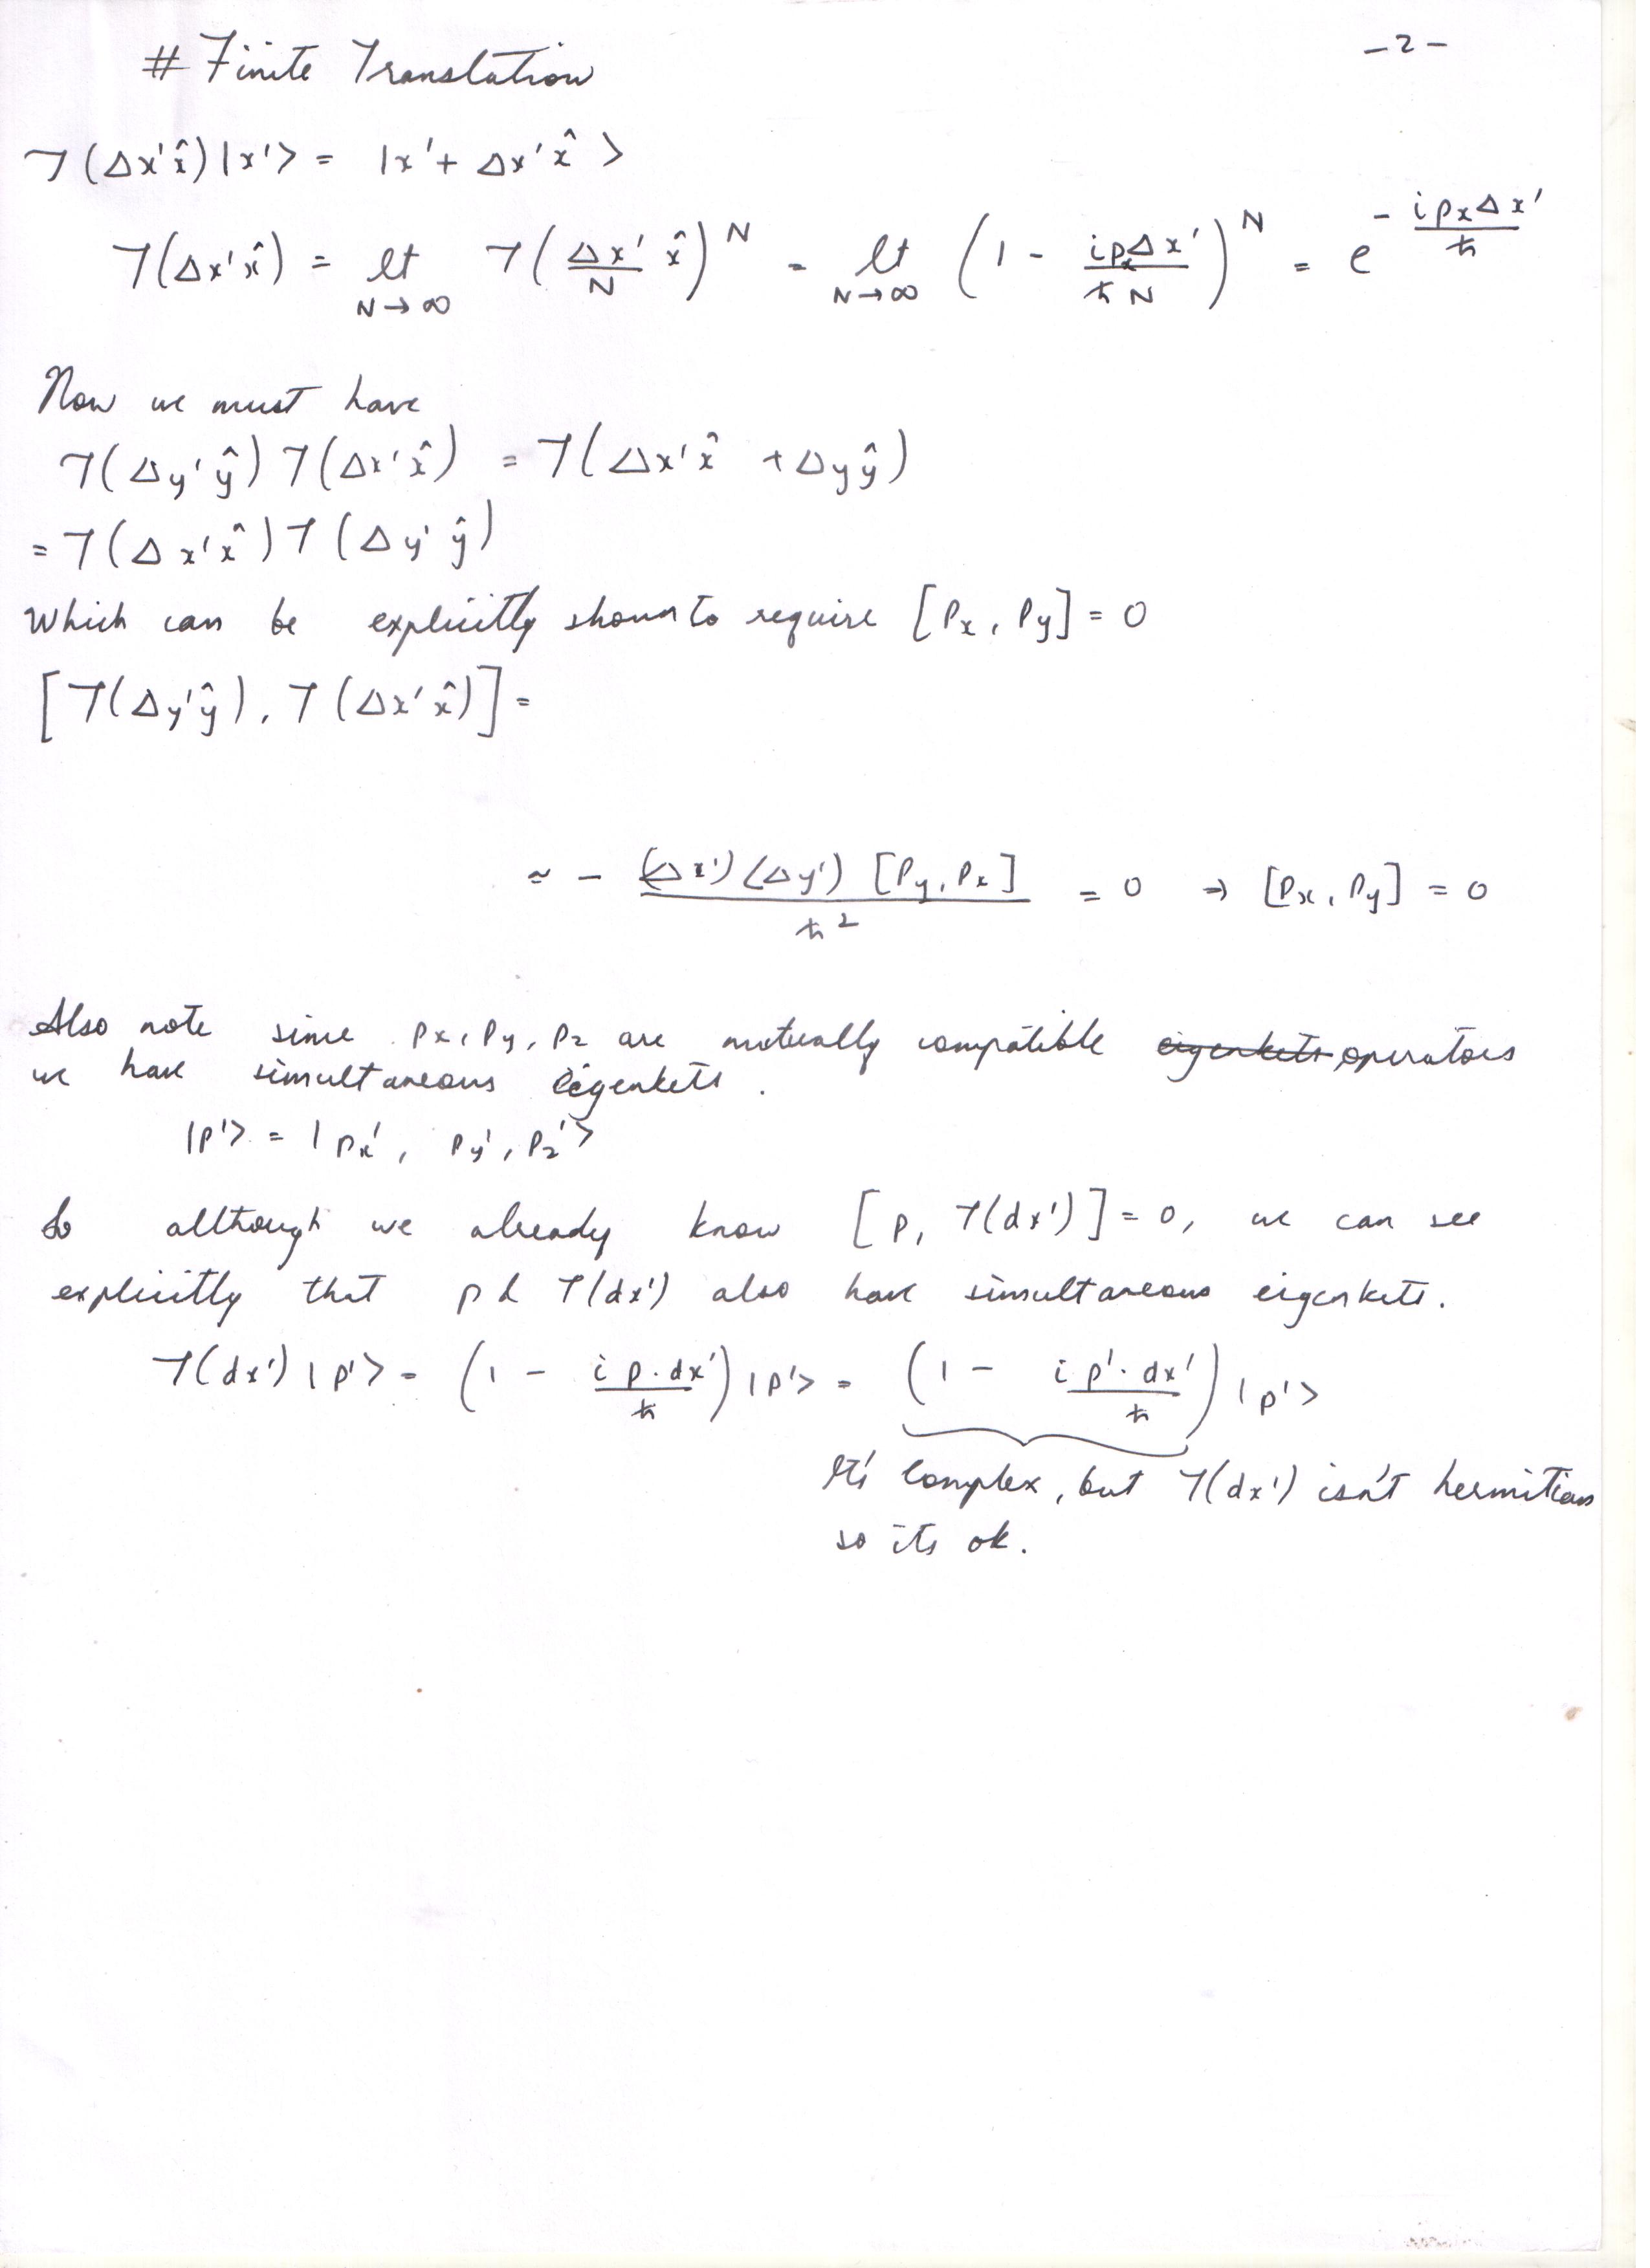 -2-
# Finite Translation
T(Δx'x̂)|x'> = |x'+ Δx'x̂ >
T(Δx'x̂) = lt N→∞ T(Δx'/N x̂)^N = lt N→∞ (1 - ipₓΔx'/ħN)^N = e^(-ipₓΔx'/ħ)
Now we must have
T(Δy'ŷ) T(Δx'x̂) = T(Δx'x̂ + Δyŷ)
= T(Δx'x̂) T(Δy'ŷ)
Which can be explicitly shown to require [Px, Py] = 0
[T(Δy'ŷ), T(Δx'x̂)] =
≈ - (Δx')(Δy') [Py, Px] / ħ² = 0 ⇒ [Px, Py] = 0
Also note since Px, Py, Pz are mutually compatible eigenkets operators
we have simultaneous eigenkets.
|p'> = |px', py', pz'>
So although we already know [p, T(dx')] = 0, we can see
explicitly that p & T(dx') also have simultaneous eigenkets.
T(dx') |p'> = (1 - i p·dx'/ħ) |p'> = (1 - i p'·dx'/ħ) |p'>
It's Complex, but T(dx') isn't hermitian
so its ok.